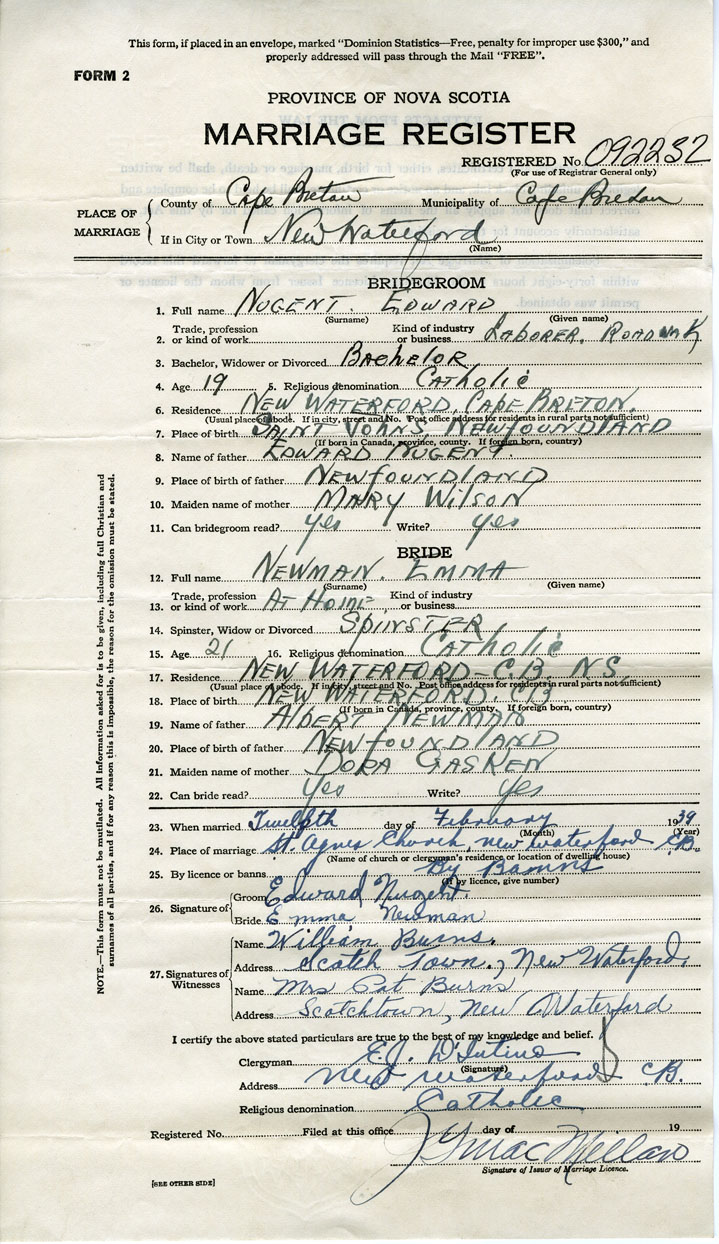 This form, if placed in an envelope, marked "Dominion Statistics—Free, penalty for improper use $300," and
properly addressed will pass through the Mail "FREE".
FORM 2
PROVINCE OF NOVA SCOTIA
MARRIAGE REGISTER
REGISTERED No. 092232
(For use of Registrar General only)
PLACE OF MARRIAGE
County of Cape Breton Municipality of Cape Breton
If in City or Town New Waterford
(Name)
BRIDEGROOM
1. Full name NUGENT. EDWARD
(Surname) (Given name)
2. Trade, profession or kind of work Kind of industry or business LABORER. ROADWAK
3. Bachelor, Widower or Divorced BACHELOR
4. Age 19 5. Religious denomination CATHOLIC
6. Residence NEW WATERFORD, CAPE BRETON.
(Usual place of abode. If in city, street and No. Post office address for residents in rural parts not sufficient)
7. Place of birth SAINT JOHNS, NEWFOUNDLAND
(If born in Canada, province, county. If foreign born, country)
8. Name of father EDWARD NUGENT.
9. Place of birth of father NEWFOUNDLAND
10. Maiden name of mother MARY WILSON
11. Can bridegroom read? yes Write? yes
BRIDE
12. Full name NEWMAN. EMMA
(Surname) (Given name)
13. Trade, profession or kind of work AT HOME Kind of industry or business
14. Spinster, Widow or Divorced SPINSTER
15. Age 21 16. Religious denomination CATHOLIC
17. Residence NEW WATERFORD C.B. N.S.
(Usual place of abode. If in city, street and No. Post office address for residents in rural parts not sufficient)
18. Place of birth NEW WATERFORD, C.B.
(If born in Canada, province, county. If foreign born, country)
19. Name of father ALBERT NEWMAN
20. Place of birth of father NEWFOUNDLAND
21. Maiden name of mother DORA GASKEN
22. Can bride read? yes Write? yes
23. When married Twelfth day of February 1939
(Month) (Year)
24. Place of marriage St. Agnes Church, new waterford C.B.
(Name of church or clergyman's residence or location of dwelling house)
25. By licence or banns By Banns
(If by licence, give number)
26. Signature of
Groom Edward Nugent.
Bride Emma Newman
27. Signatures of Witnesses
Name William Burns.
Address Scotch Town., New Waterford.
Name Mrs Pat Burns
Address Scotchtown, New Waterford
I certify the above stated particulars are true to the best of my knowledge and belief.
Clergyman E.J. D'Intino
(Signature)
Address New Waterford C.B.
Religious denomination Catholic
Registered No. Filed at this office day of 19
MacMellan
Signature of Issuer of Marriage Licence.
[SEE OTHER SIDE]
NOTE.—This form must not be mutilated. All information asked for is to be given, including full Christian and
surnames of all parties, and if for any reason this is impossible, the reason for the omission must be stated.